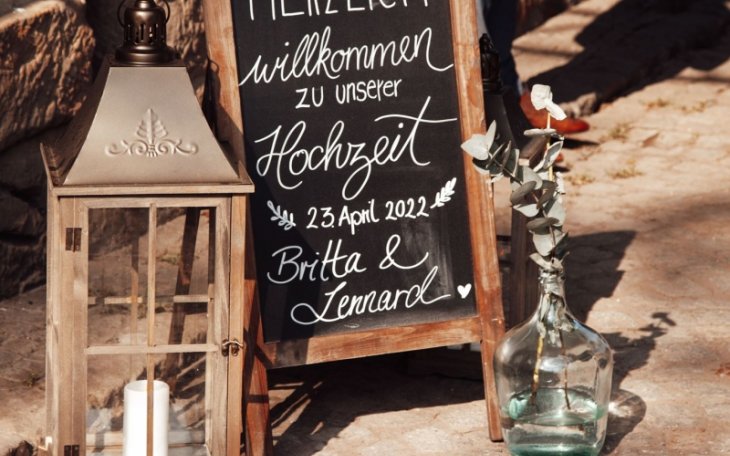 HERZLICH
willkommen
zu unserer
Hochzeit
23. April 2022
Britta &
Lennard